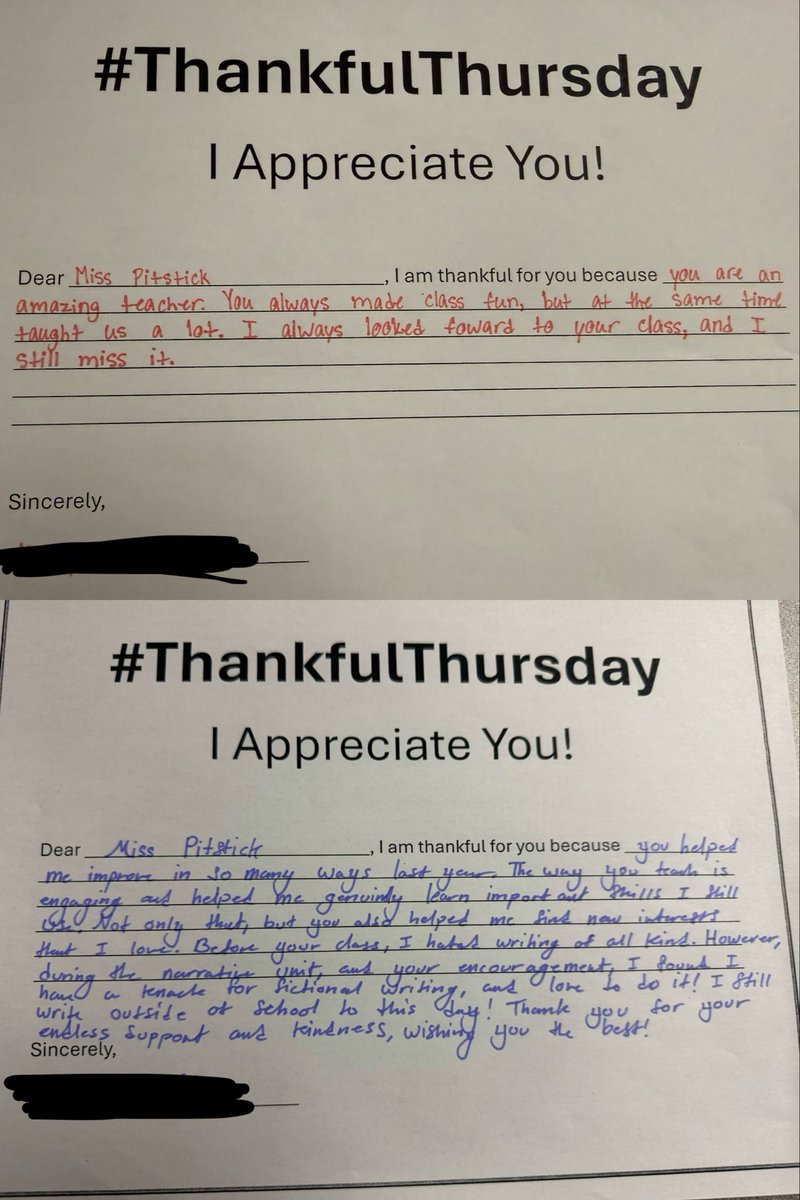 #ThankfulThursday
I Appreciate You!
Dear Miss Pitstick, I am thankful for you because you are an
amazing teacher. You always made class fun, but at the same time
taught us a lot. I always looked foward to your class, and I
still miss it.
Sincerely,
#ThankfulThursday
I Appreciate You!
Dear Miss Pitstick, I am thankful for you because you helped
me improve in so many ways last year. The way you teach is
engaging and helped me genuinly learn important skills I still
use. Not only that, but you also helped me find new interests
that I love. Before your class, I hated writing of all kind. However,
during the narrative unit, and your encouragement, I found I
have a knack for fictional writing, and love to do it! I still
write outside of school to this day! Thank you for your
endless support and kindness, wishing you the best!
Sincerely,